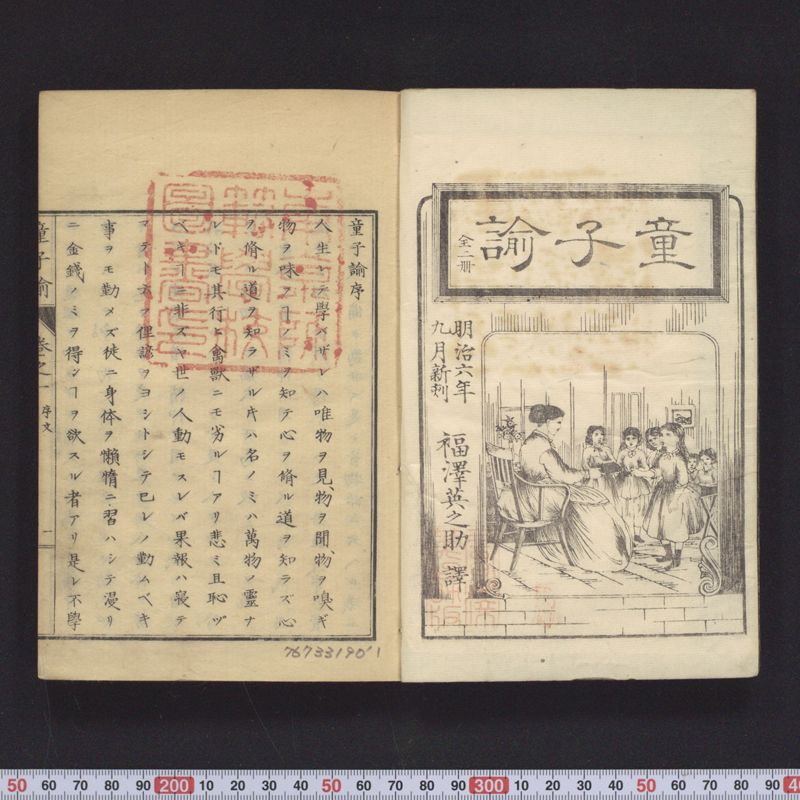 童子諭
全二册
明治六年
九月新刻
福澤英之助 譯
童子諭序
人生レテ學バザレハ唯物ヲ見、物ヲ聞、物ヲ嗅ギ
物ヲ味フヿノミヲ知テ心ヲ脩ル道ヲ知ラズ心
ヲ脩ル道ヲ知ラザル𪜈ハ名ノミハ萬物ノ靈ナ
レドモ其行ヒ禽獸ニモ劣ルヿアリ悲ミ且恥ヅ
ベキヿニ非ズヤ世ノ人動モスレバ果報ハ寢テ
マテト云フ俚諺ヲヨシトシテ已レノ勤ムベキ
事ヲモ勤メズ徒ニ身体ヲ懶惰ニ習ハシテ漫リ
ニ金錢ノミヲ得ンヿヲ欲スル者アリ是レ不學
童子諭
卷之一
序文
一
767331901
50 60 70 80 90 200 10 20 30 40 50 60 70 80 90 300 10 20 30 40 50 60 70 80 90